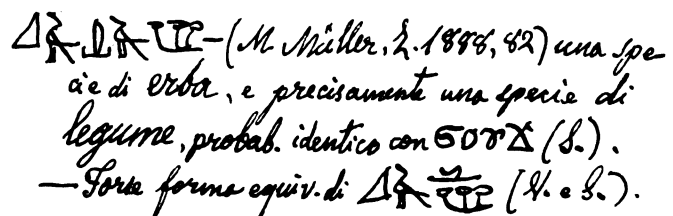 — (M. Müller, Z. 1888, 82) una spe
cie di erba, e precisamente una specie di
legume, probab. identico con ϭⲟⲩϫ (S.).
— Forse forma equiv. di ( e S.).